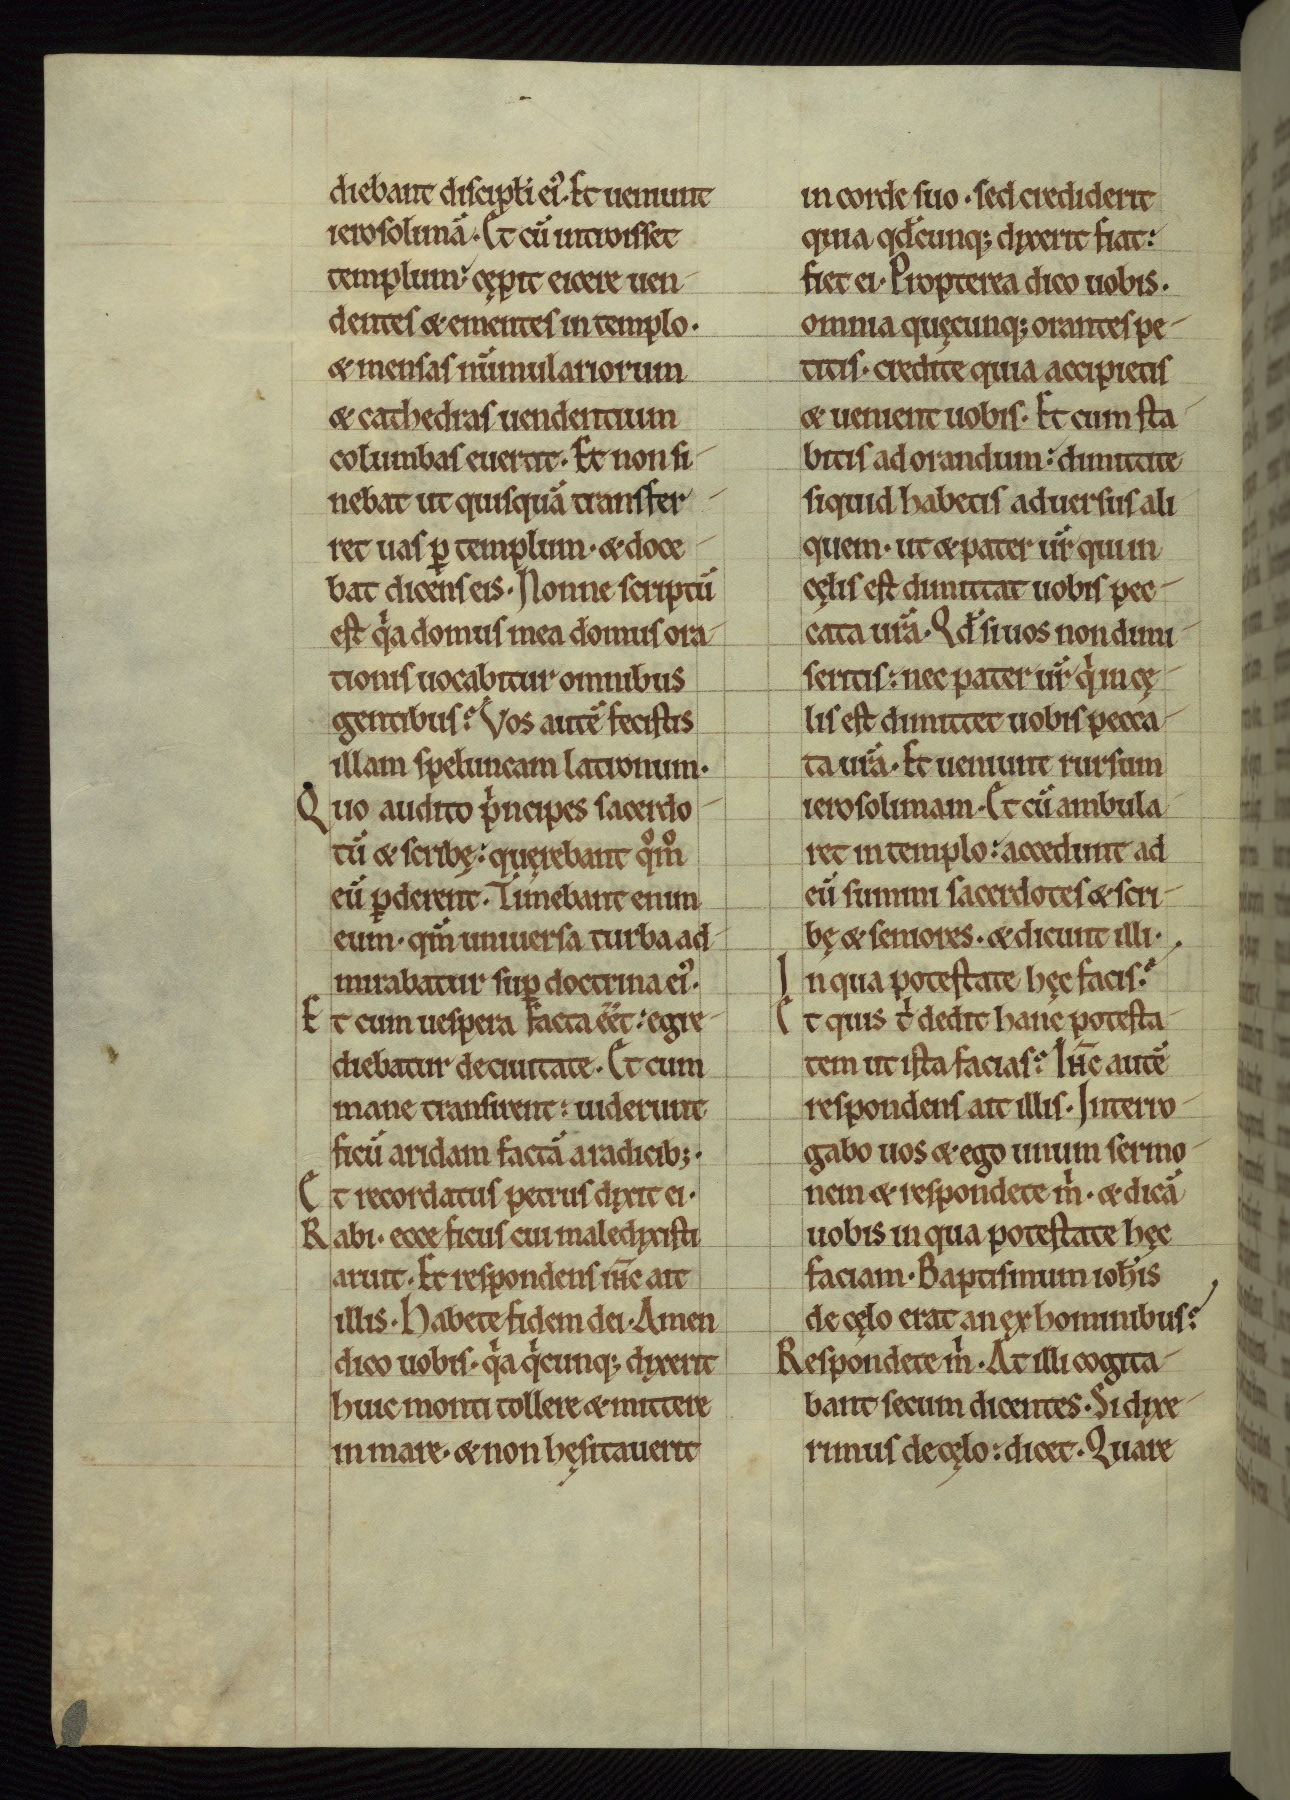 diebant discipłi ei᾽. Et ueniunt
ierosolimā. Et cū introisset
templum: cępit eicere uen-
dentes & ementes in templo.
& mensas nūmulariorum
& cathedras uendentium
columbas euertit. Et non si-
nebat ut quisquā transfer-
ret uas ꝑ templum. & doce-
bat dicens eis. Nonne scriptū
est qͥa domus mea domus ora-
tionis uocabitur omnibus
gentibus? Vos autē fecistis
illam speluncam latronum.
Quo audito pͥncipes sacerdo-
tū & scribę: quęrebant qͦmͦ
eū ꝑderent. Timebant enim
eum. qm̄ uniuersa turba ad-
mirabatur suꝑ doctrina ei᾽.
Et cum uespera facta ēēt: egre-
diebatur de ciuitate. Et cum
mane transirent: uiderunt
ficū aridam factā a radicib;.
Et recordatus petrus dixit ei.
Rabi. ecce ficus cui maledixisti
aruit. Et respondens ihc̄ ait
illis. Habete fidem dei. Amen
dico uobis. qͥa qͥcunq; dixerit
huic monti tollere & mittere
in mare. & non hęsitauerit
in corde suo. sed crediderit
quia qd̄cunq; dixerit fiat:
fiet ei. Propterea dico uobis.
omnia quęcunq; orantes pe-
titis. credite quia accipietis
& uenient uobis. Et cum sta-
bitis ad orandum: dimittite
siquid habetis aduersus ali
quem. ut & pater ur̄ qui in
cęlis est dimittat uobis pec-
cata ur̄a. Qd̄ si uos non dimi-
seritis: nec pater ur̄ qͥ in cę-
lis est dimittet uobis pecca-
ta ur̄a. Et ueniunt rursum
ierosolimam. Et cū ambula-
ret in templo: accedunt ad
eū summi sacerdotes & scri-
bę & seniores. & dicunt illi.
In qua potestate hęc facis?
Et quis tͥ dedit hanc potesta-
tem ut ista facias? Ihc̄ autē
respondens ait illis. Interro-
gabo uos & ego unum sermo-
nem & respondete mͥ. & dicā
uobis in qua potestate hęc
faciam. Baptismum ioħis
de cęlo erat an ex hominibus?
Respondete mͥ. At illi cogita-
bant secum dicentes. Si dixe-
rimus de cęlo: dicet. Quare